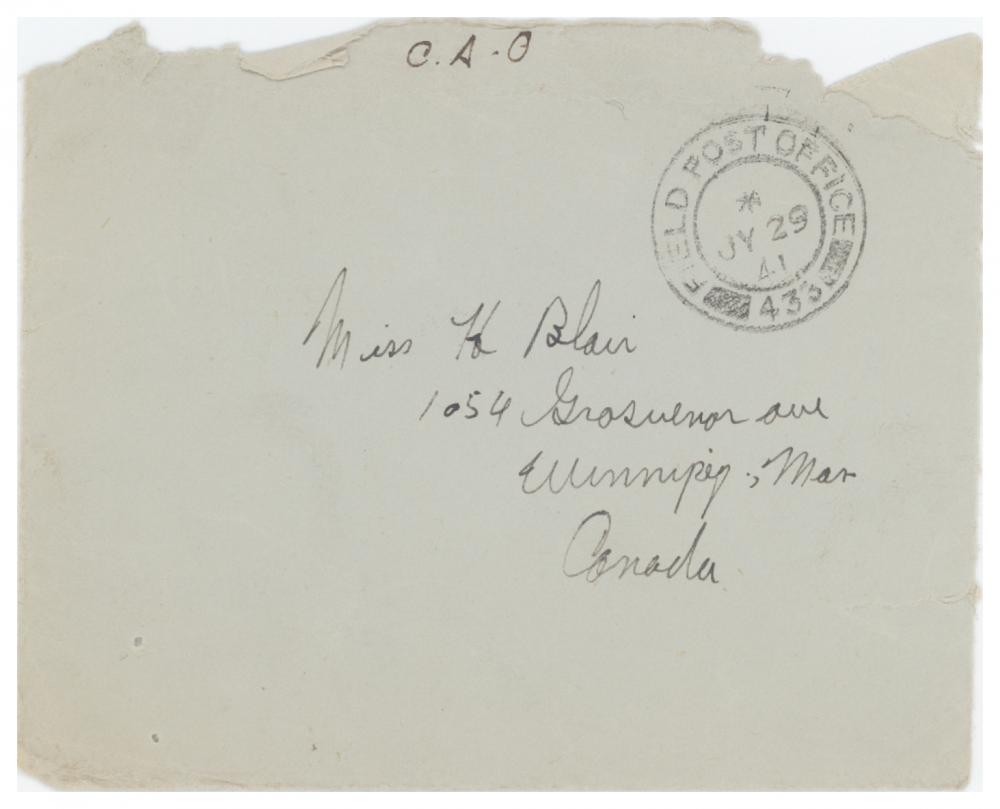 C.A.O
FIELD POST OFFICE
*
JY 29
41
433
Miss K Blair
1054 Grosvenor ave
Winnipeg, Man
Canada